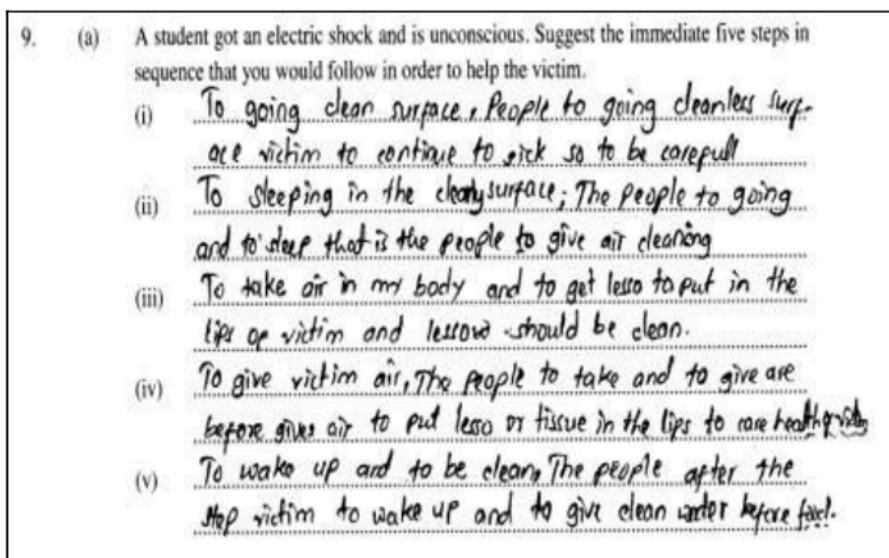 9. (a) A student got an electric shock and is unconscious. Suggest the immediate five steps in
sequence that you would follow in order to help the victim.
(i) To going clean surface, People to going cleanless surf-
ace victim to continue to sick so to be carefull
(ii) To sleeping in the surface; The people to going
and to sleep that is the people to give air cleaning
(iii) To take air in my body and to get lesso to put in the
lips of victim and should be clean.
(iv) To give victim air, The people to take and to give are
before gives air to put lesso or tissue in the lips to care health
(v) To wake up and to be clean, The people after the
step victim to wake up and to give clean before